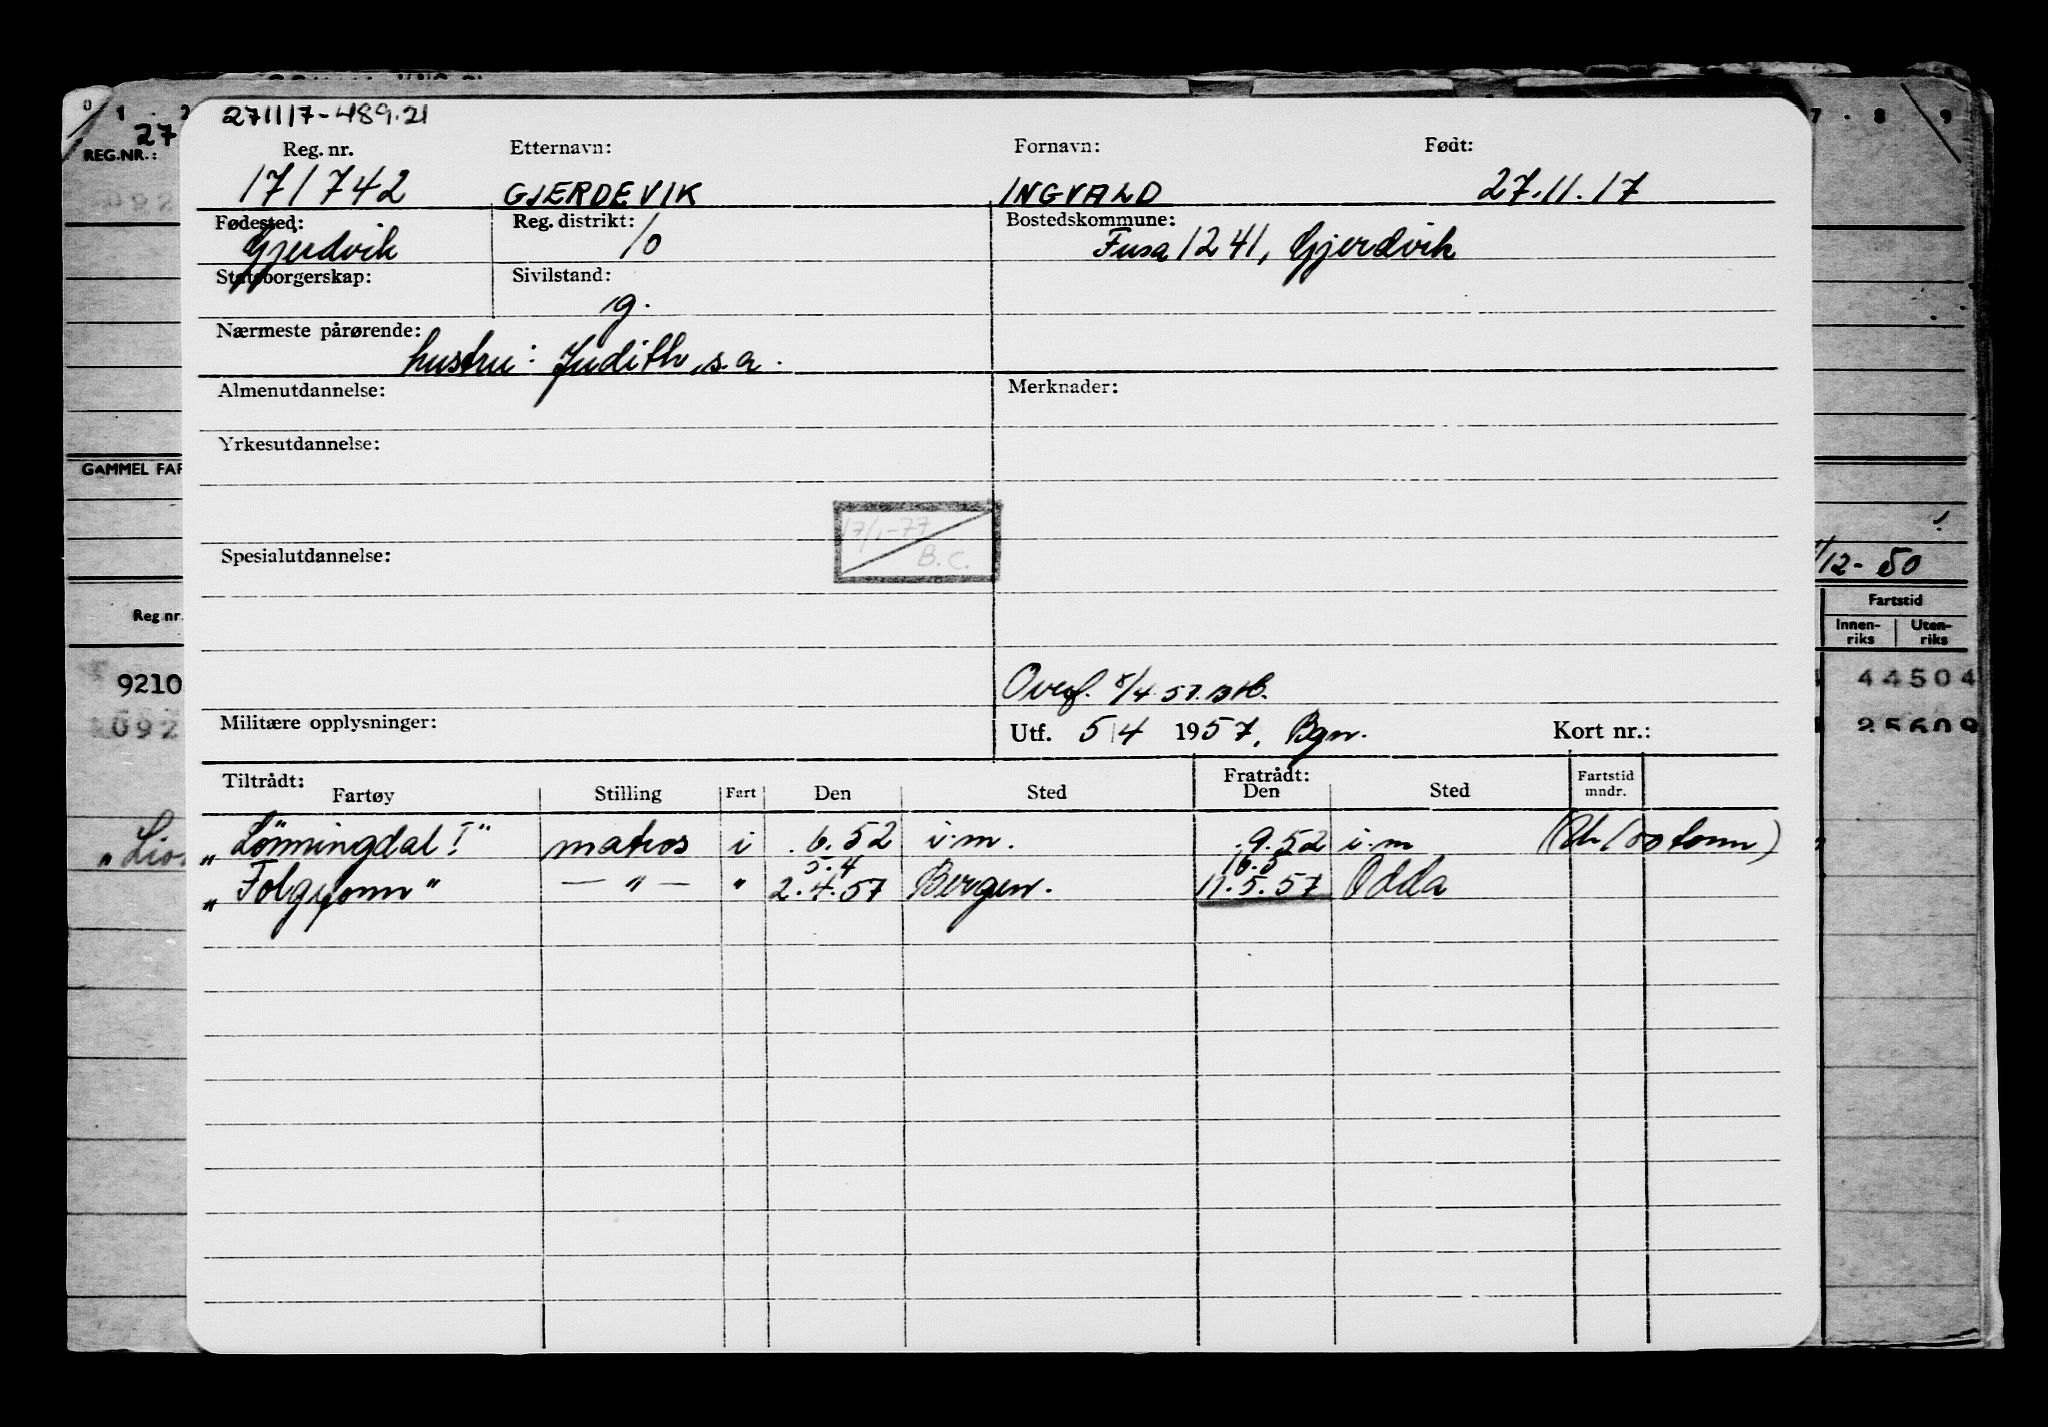 271117-489.21
0 1 7 . 8 9
27
REG.NR.:
Reg. nr. Etternavn: Fornavn: Født:
171742 GJERDEVIK INGVALD 27.11.17
Fødested: Reg. distrikt: Bostedskommune:
Gjerdvik 10 Fusa 1241, Gjerdvik
Statsborgerskap: Sivilstand:
g.
Nærmeste pårørende:
hustru: Judith, s.a.
Almenutdannelse: Merknader:
Yrkesutdannelse:
GAMMEL FAR
17/1-77
B.C.
Spesialutdannelse:
/12-50
Reg nr. Fartstid
Innen-riks Uten-riks
9210 44504
092 25609
Overf. 8/4.57.
Militære opplysninger: Utf. 5/4 1957, Bgn. Kort nr.:
Tiltrådt: Fratrådt: Fartstid
Fartøy Stilling Fart Den Sted Den Sted mndr.
"Lønningdal I" matros i .6.52 i.m. .9.52 i.m (Bk 100 tonn)
5.4 16.5
"Folgefonn" — " — " 2.4.57 Bergen. 17.5.57 Odda